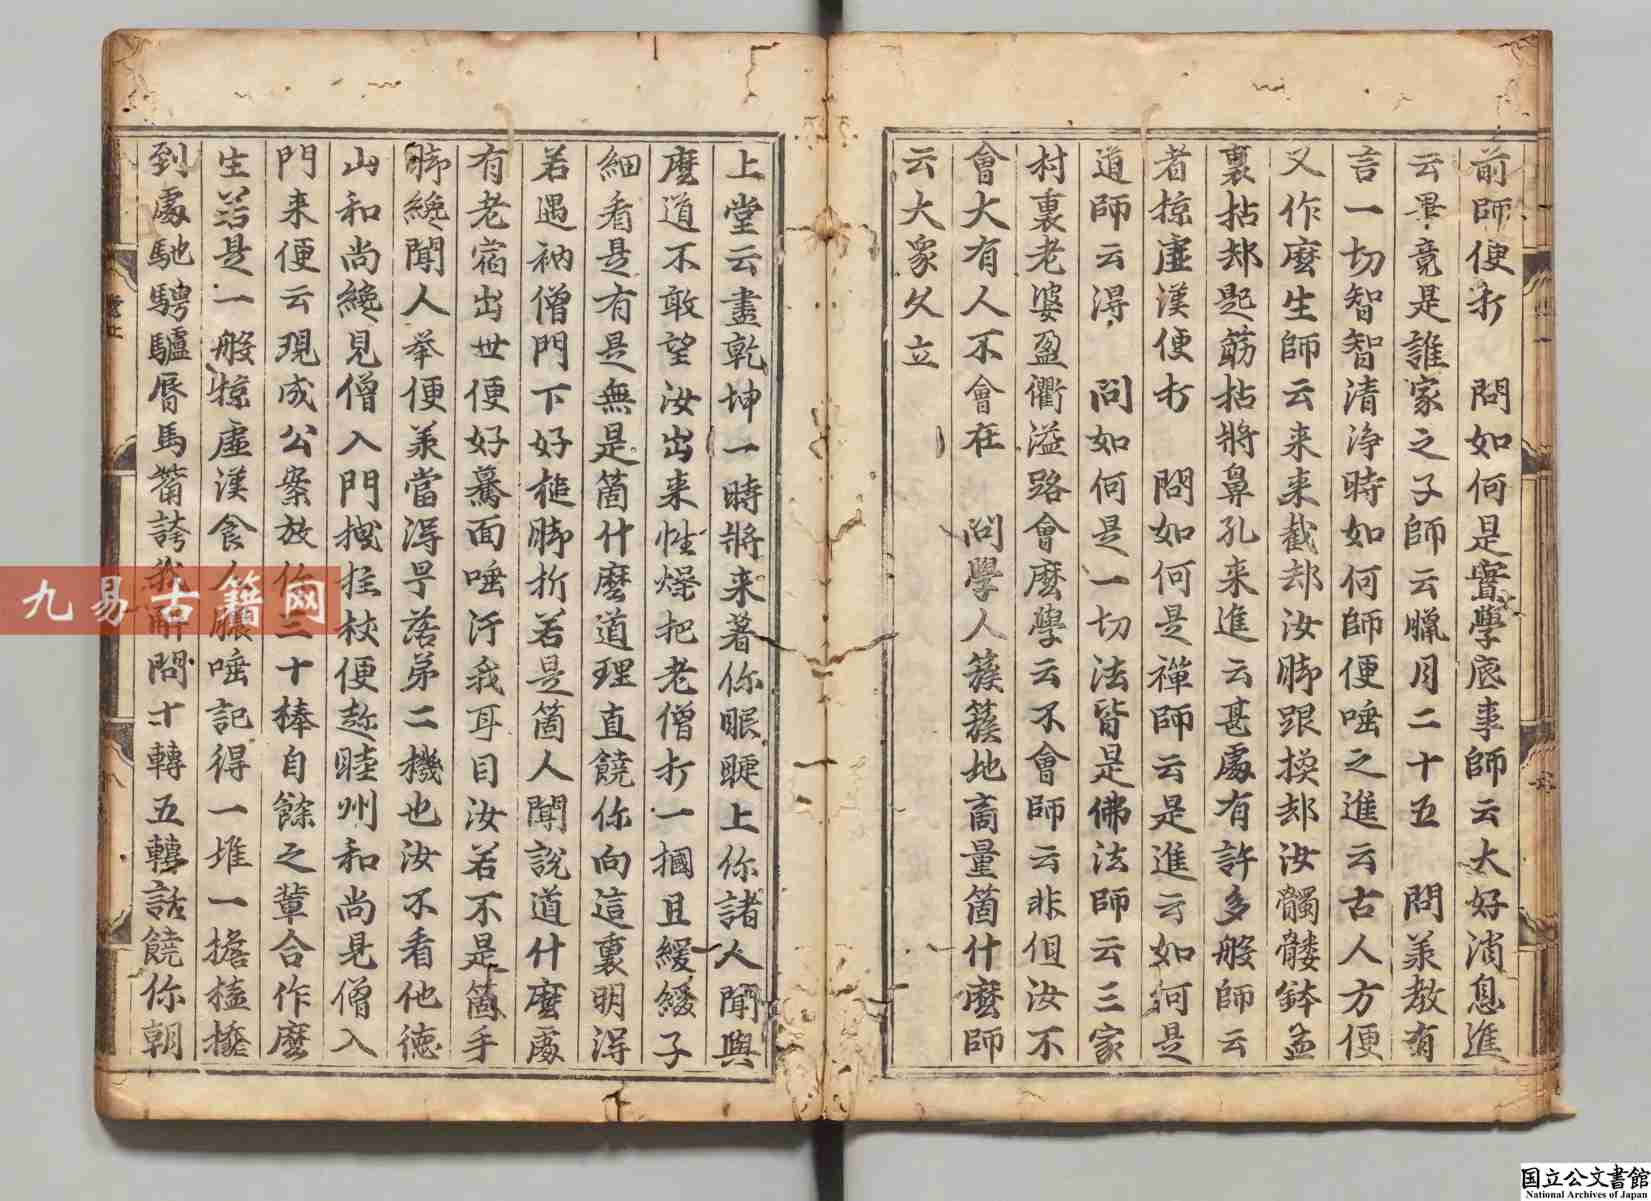 前師便打　問如何是實學底事師云大好消息進
云畢竟是誰家之子師云臘月二十五　問承教有
言一切智智清淨時如何師便唾之進云古人方便
又作麼生師云來來截却汝脚跟換却汝髑髏鉢盂
裏拈却匙筯拈將鼻孔來進云甚處有許多般師云
者掠虛漢便打　問如何是禪師云是進云如何是
道師云得　問如何是一切法皆是佛法師云三家
村裏老婆盈衢溢路會麼學云不會師云非但汝不
會大有人不會在　問學人簇簇地商量箇什麼師
云大衆久立
上堂云盡乾坤一時將來著你眼睫上你諸人聞與
麼道不敢望汝出來性燥把老僧打一摑且緩緩子
細看是有是無是箇什麼道理直饒你向這裏明得
若遇衲僧門下好槌脚折若是箇人聞說道什麼處
有老宿出世便好驀面唾汙我耳目汝若不是箇手
脚纔聞人舉便承當得早落第二機也汝不看他德
山和尚纔見僧入門拽拄杖便趂睦州和尚見僧入
門來便云現成公案放你三十棒自餘之輩合作麼
生若是一般掠虛漢食人膿唾記得一堆一擔榼𢶍
到處馳騁驢脣馬觜誇我解問十轉五轉話饒你朝
九易古籍网
国立公文書館
National Archives of Japan